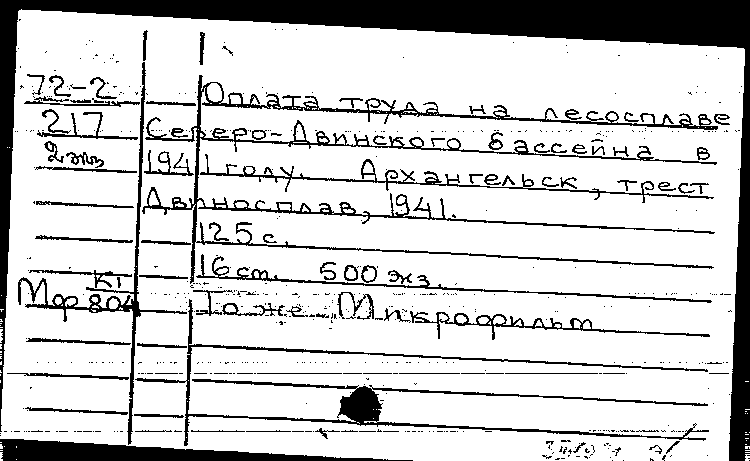 72-2 Оплата труда на лесосплаве
217 Северо-Двинского бассейна в
2 экз 1941 году. Архангельск, трест
Двиносплав, 1941.
125 с.
16 см. 500 экз.
Мф К1/804 То же. Микрофильм